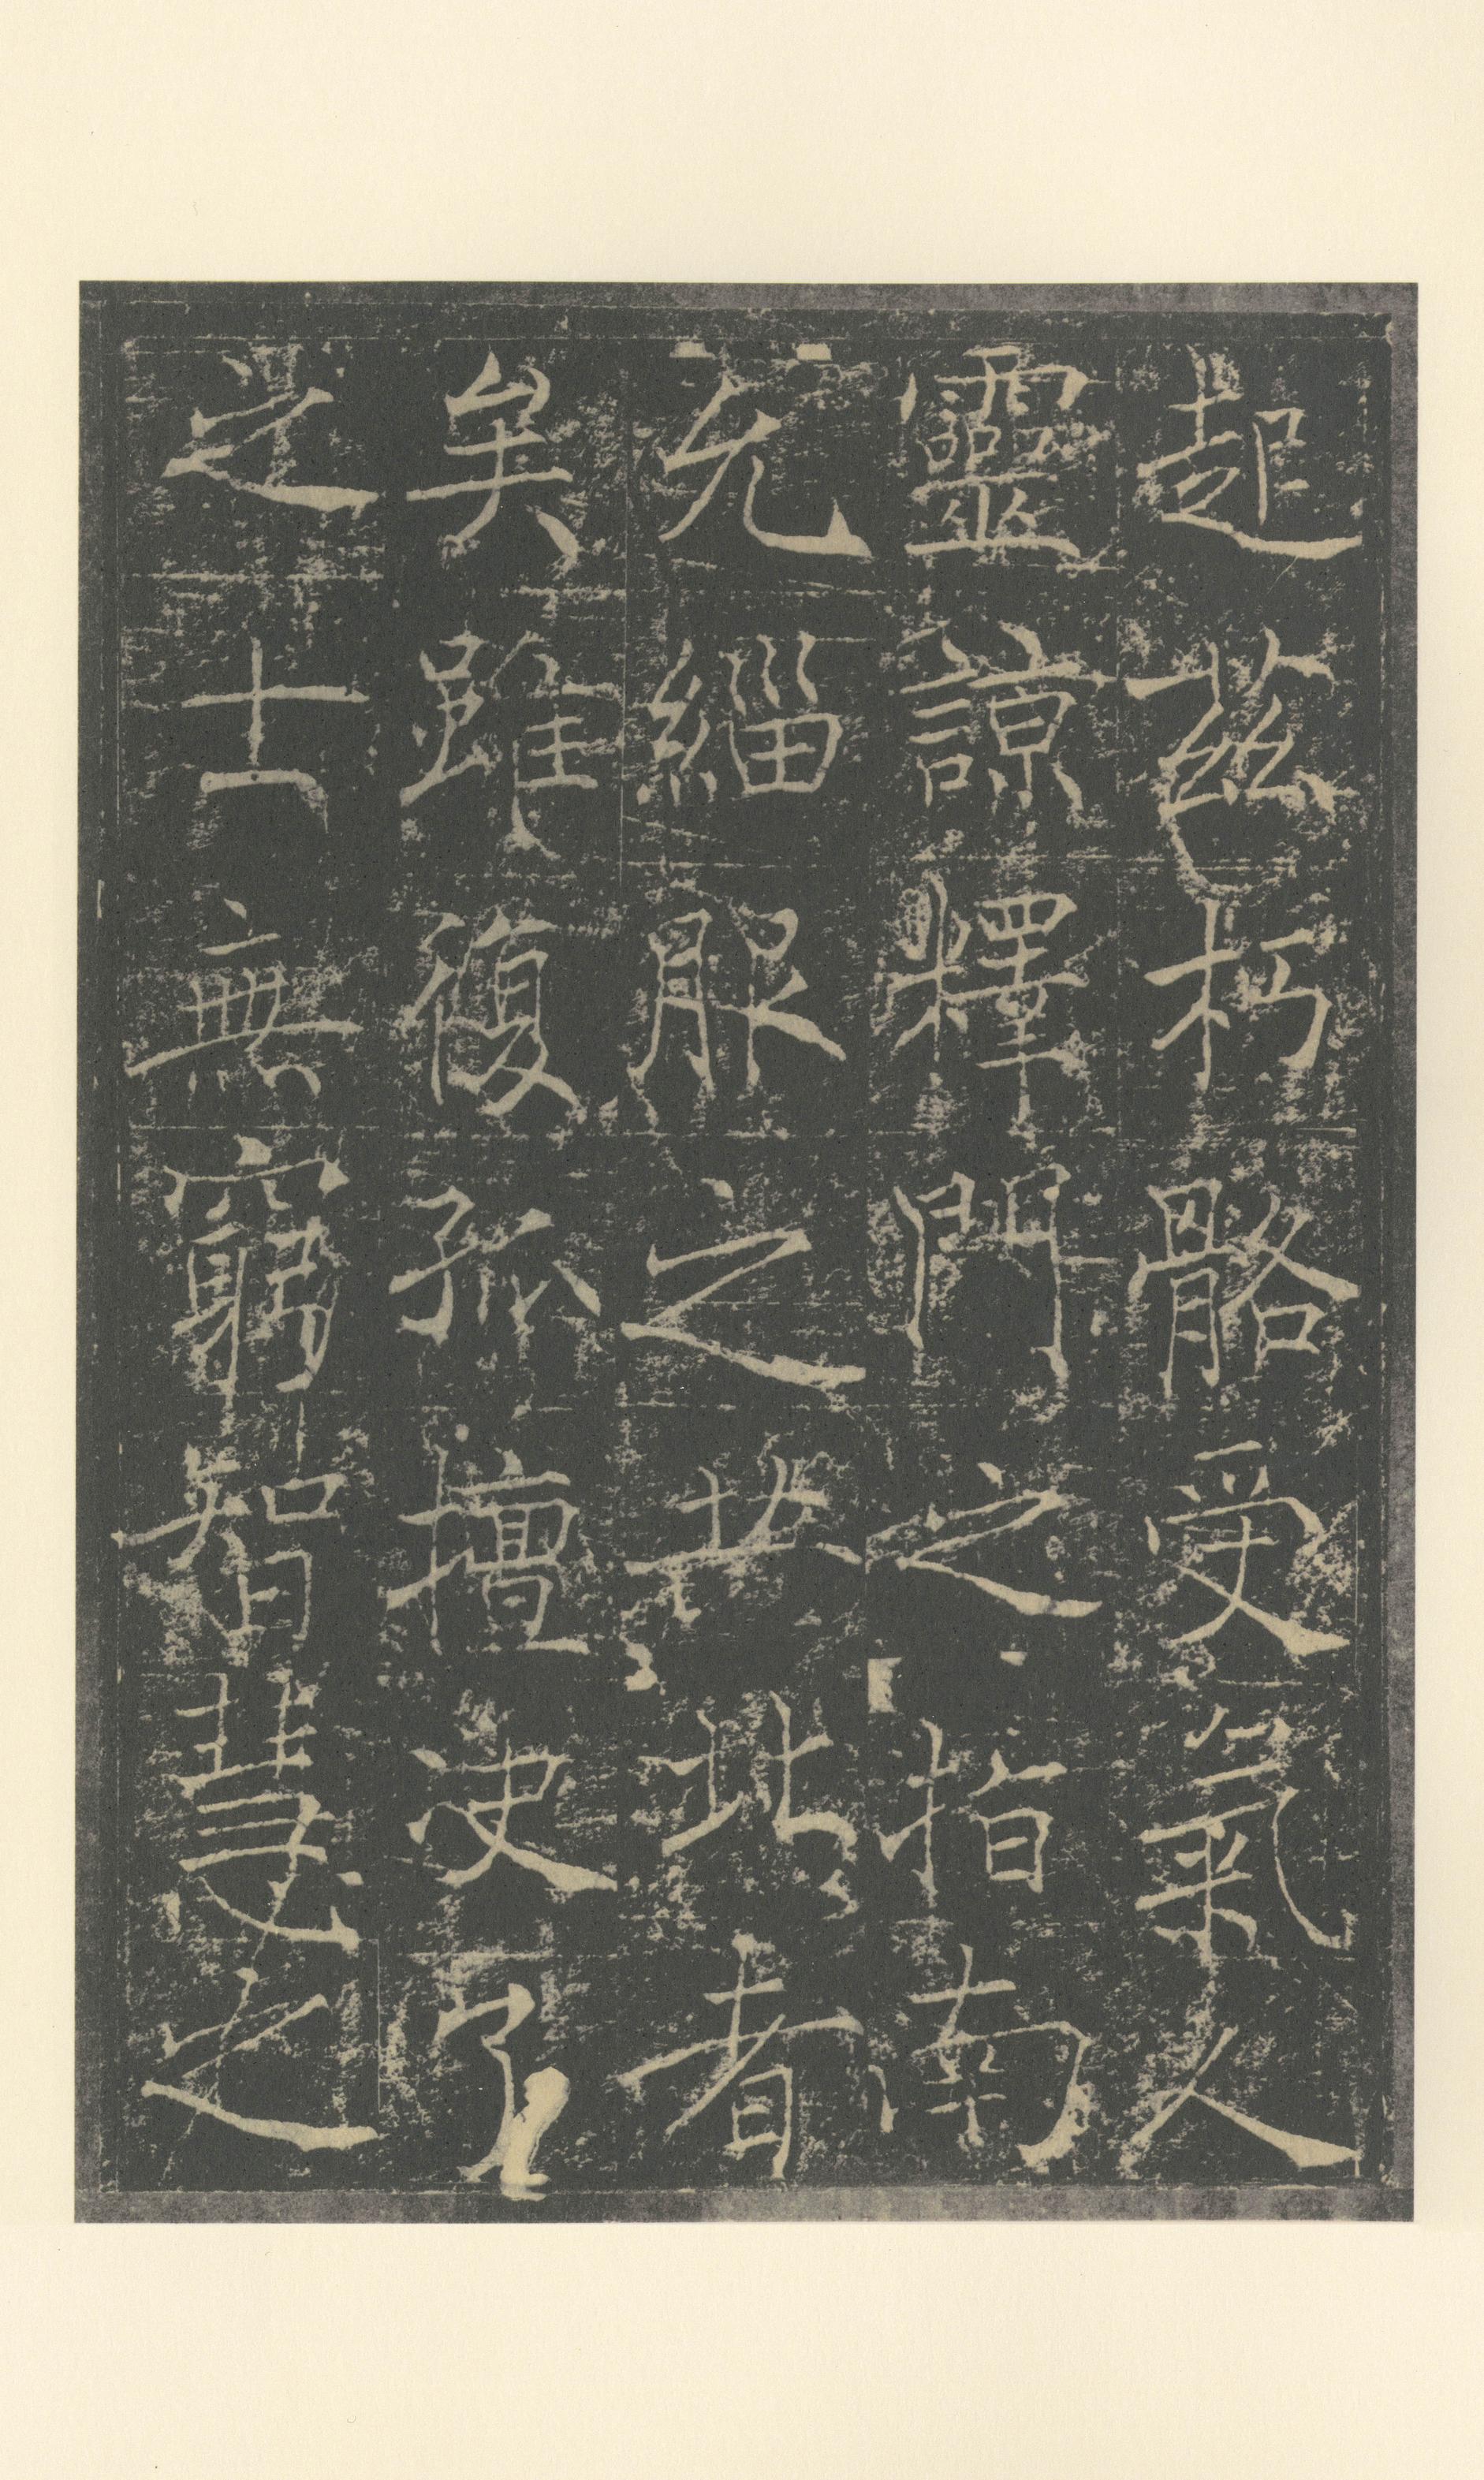 起茲朽骼受氣久
靈諒釋門之指南
允緇服之龔此者
矣雖復孤擅決了
之士無窮智慧之